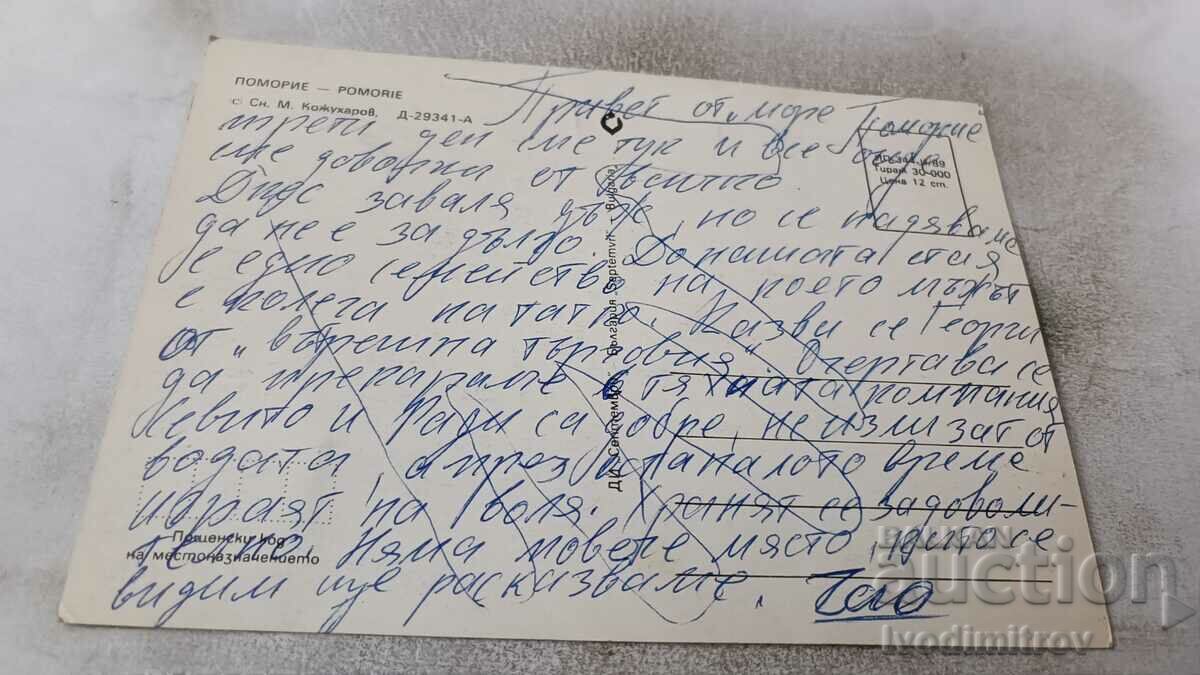 ПОМОРИЕ — POMORIE
Сн. М. Кожухаров, Д-29341-А
Поръчка 4/89
Тираж 30 000
Цена 12 ст.
Привет от "море Поморие
трети ден сме тук и все още
сме доволни от всичко
Днес заваля дъжд, но се надяваме
да не е за дълго. До нашата стая
е едно семейство на което мъжът
е колега на татко. Казви се Георги
от "вътрешна търговия" Очертава се
да прекараме в тяхната компания
и Ради са добре, не излизат от
водата, а през останалото време
играят на воля. Хранят се задоволи-
телно. Няма повече място, като се
видим ще расказваме. Чао
ДП „Септември" България „Septemvri" Bulgaria
Пощенски код
на местоназначението
BALKAN
auction
Ivodimitrov